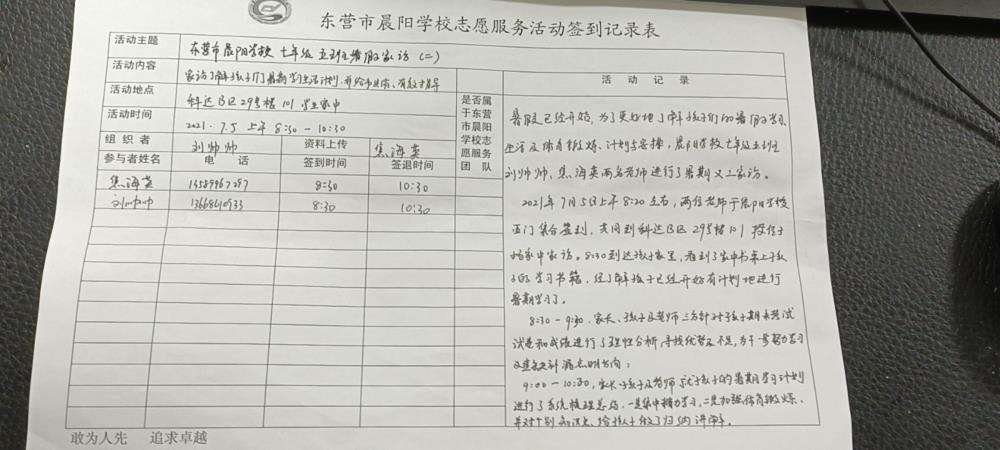 东营市晨阳学校志愿服务活动签到记录表
活动主题 东营市晨阳学校 七年级 五班主暑假家访（二）
活动内容 家访了解孩子们暑期学习生活计划，并给予具体、有效指导
活动地点 科达B区29号楼101 学生家中
活动时间 2021.7.5 上午 8:30-10:30
组织者 刘帅帅 资料上传 焦海英
是否属于东营市晨阳学校志愿服务团队
参与者姓名 电话 签到时间 签退时间
焦海英 13589967287 8:30 10:30
刘帅帅 13668610933 8:30 10:30
活动记录
暑假已经开始，为了更好地了解孩子们的暑假学习
生活及体育锻炼、计划与安排，晨阳学校七年级五班
刘帅帅、焦海英两名老师进行了暑期义工家访。
2021年7月5日上午8:20左右，两位老师于晨阳学校
西门集合签到，共同到科达B区29号楼101
杨家中家访。8:30到达孩子家里，看到了家中书桌上孩
子的学习书籍，了解孩子已经开始有计划地进行
暑期学习了。
8:30-9:30，家长、孩子及老师三方针对于孩子期末考试
试卷和成绩进行了理性分析，寻找优势及不足，为下一步努力学习
及查缺补漏点明方向；
9:00-10:30，家长孩子及老师就孩子的暑期学习计划
进行了系统梳理总结，一是集中精力学习，二是加强体育锻炼，
并对个别知识点，给孩子做了归纳讲解。
敢为人先 追求卓越